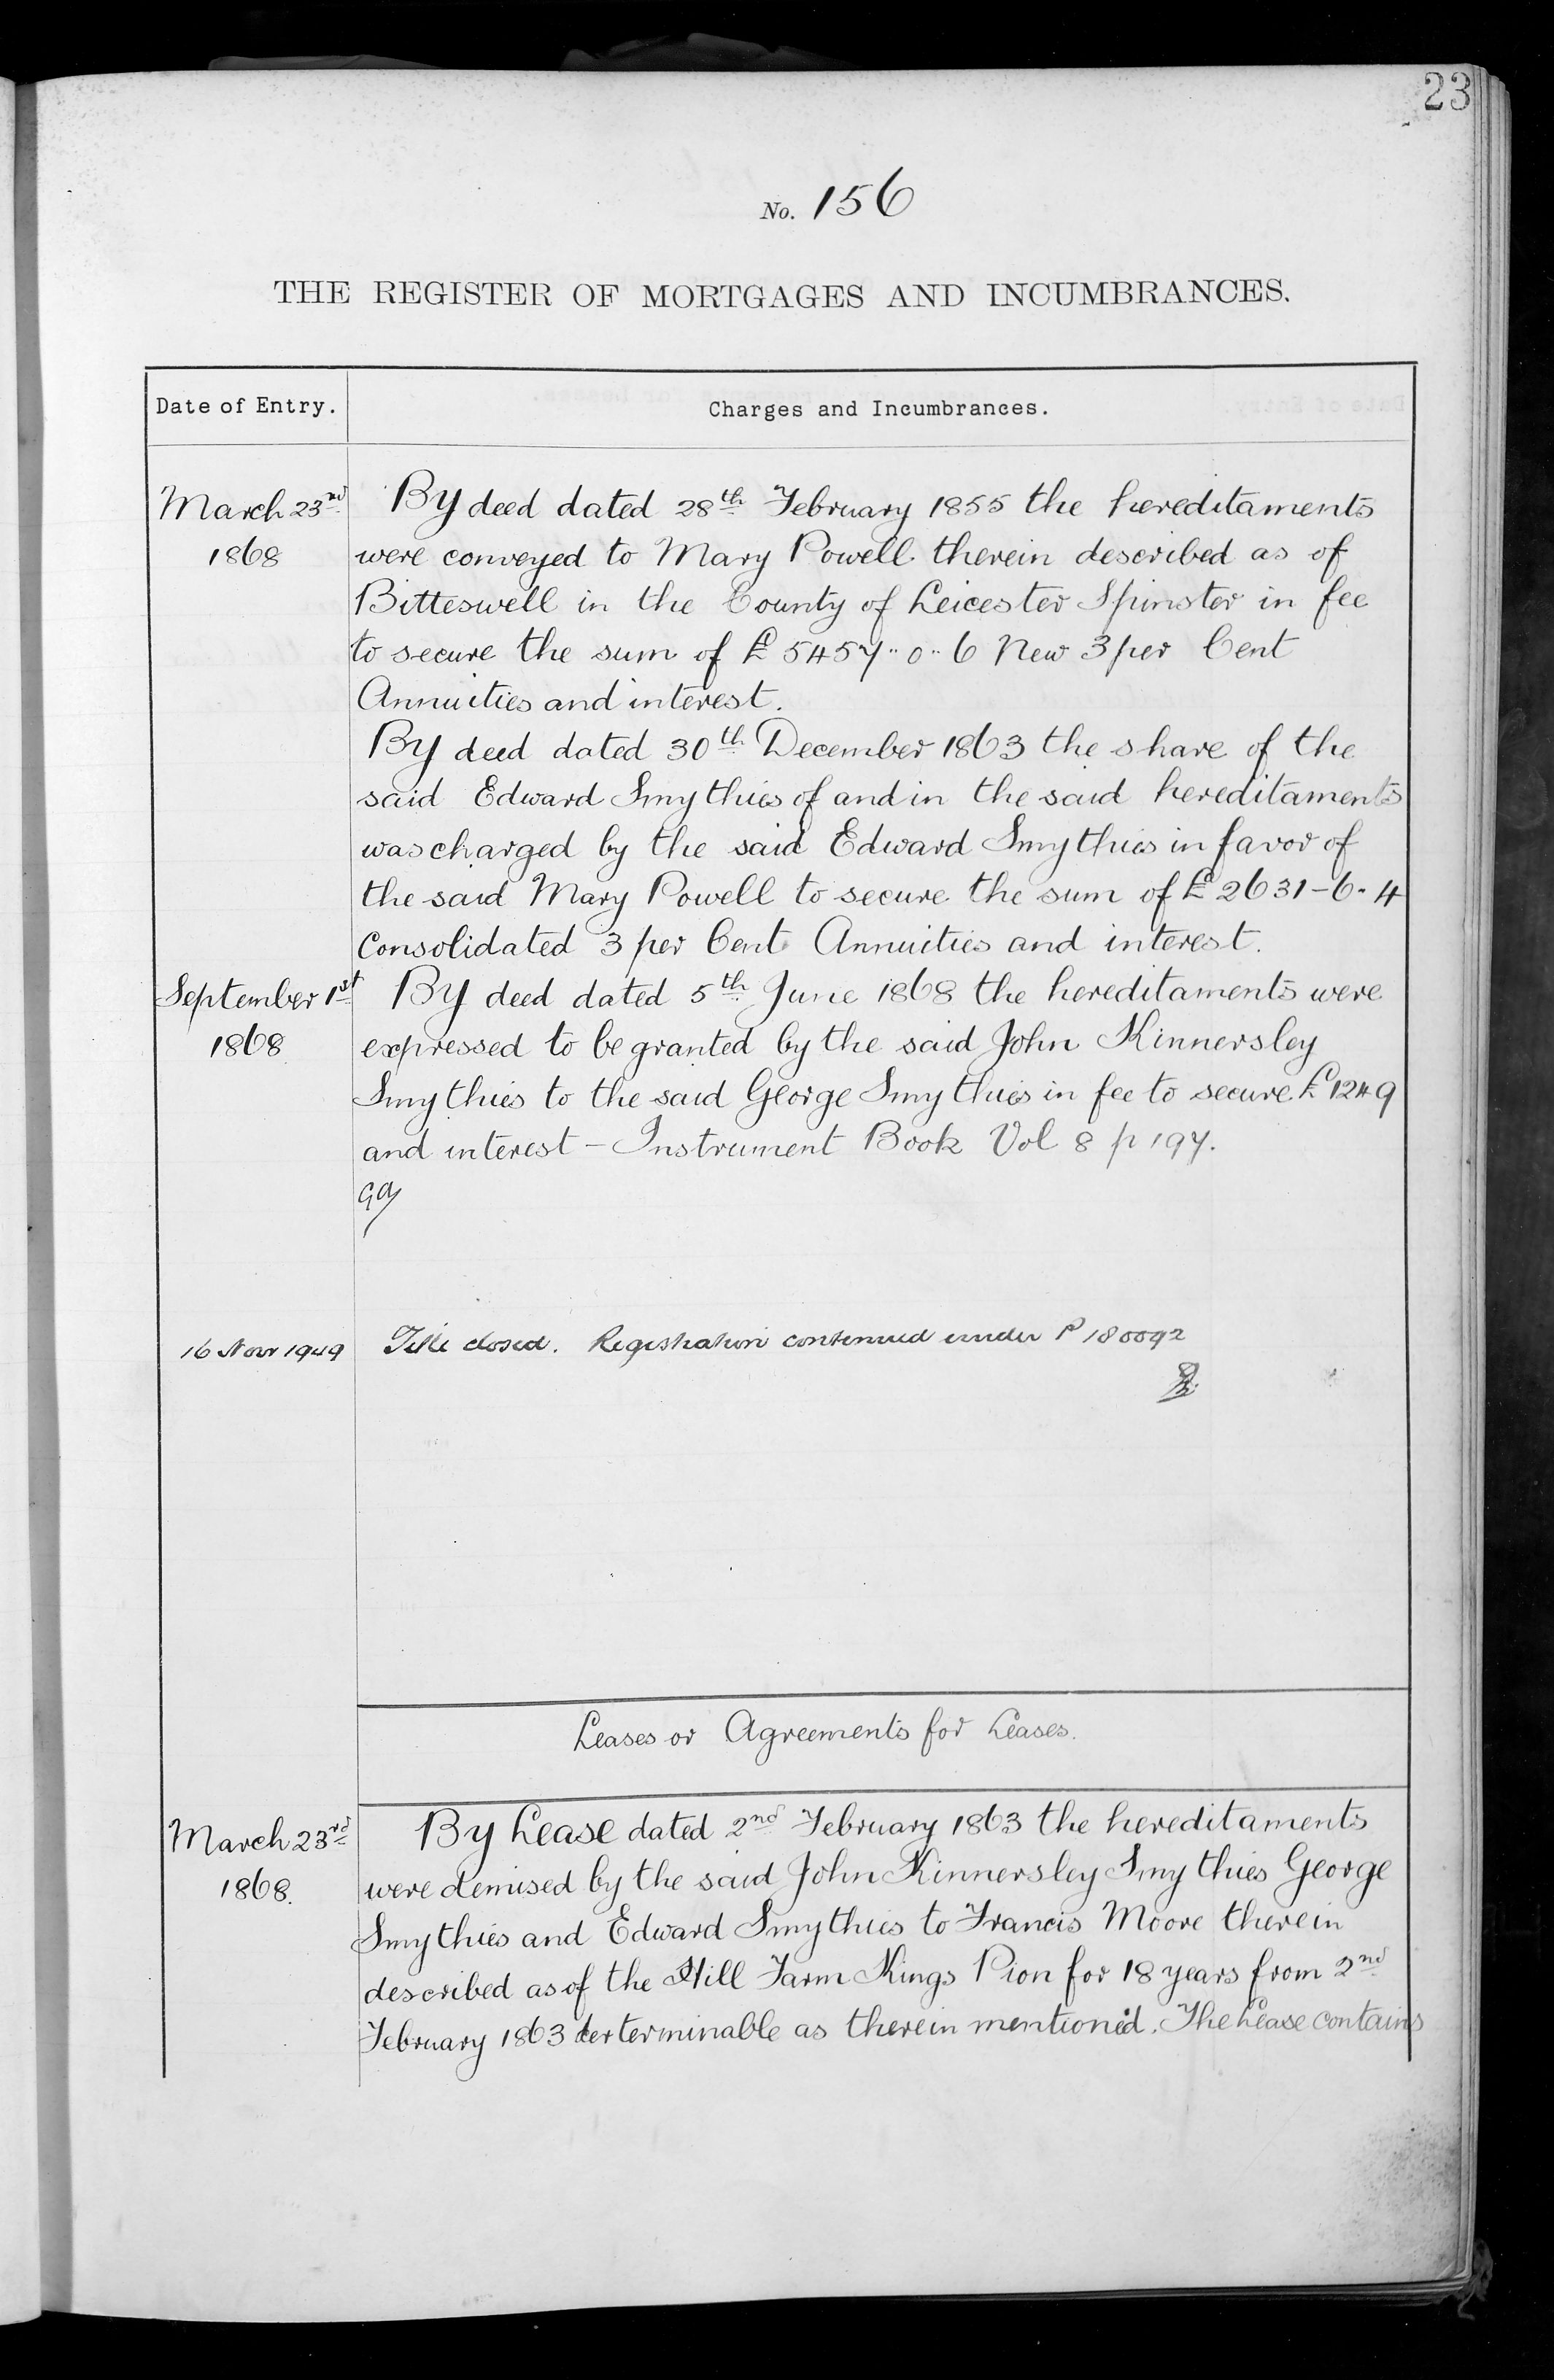 23
No. 156
THE REGISTER OF MORTGAGES AND INCUMBRANCES.
Date of Entry. Charges and Incumbrances.
March 23rd By deed dated 28th February 1855 the hereditaments
1868 were conveyed to Mary Powell therein described as of
Bitteswell in the County of Leicester Spinster in fee
to secure the sum of £5457..0..6 New 3 per Cent
Annuities and interest.
By deed dated 30th December 1863 the share of the
said Edward Smythies of and in the said hereditaments
was charged by the said Edward Smythies in favor of
the said Mary Powell to secure the sum of £2631-6-4
Consolidated 3 per Cent Annuities and interest.
September 1st By deed dated 5th June 1868 the hereditaments were
1868 expressed to be granted by the said John Kinnersley
Smythies to the said George Smythies in fee to secure £1249
and interest - Instrument Book Vol 8 p 197.
16 Nov 1949 Title closed. Registration continued under P 180092
Leases or Agreements for Leases.
March 23rd By Lease dated 2nd February 1863 the hereditaments
1868. were demised by the said John Kinnersley Smythies George
Smythies and Edward Smythies to Francis Moore therein
described as of the Hill Farm Kings Pion for 18 years from 2nd
February 1863 derterminable as therein mentioned. The Lease contains